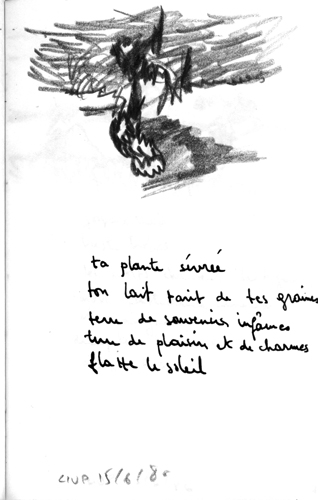 ta plante sévrée
ton lait tarit de tes graines
terre de souvenirs infâmes
terre de plaisirs et de charmes
flatte le soleil
15/6/8